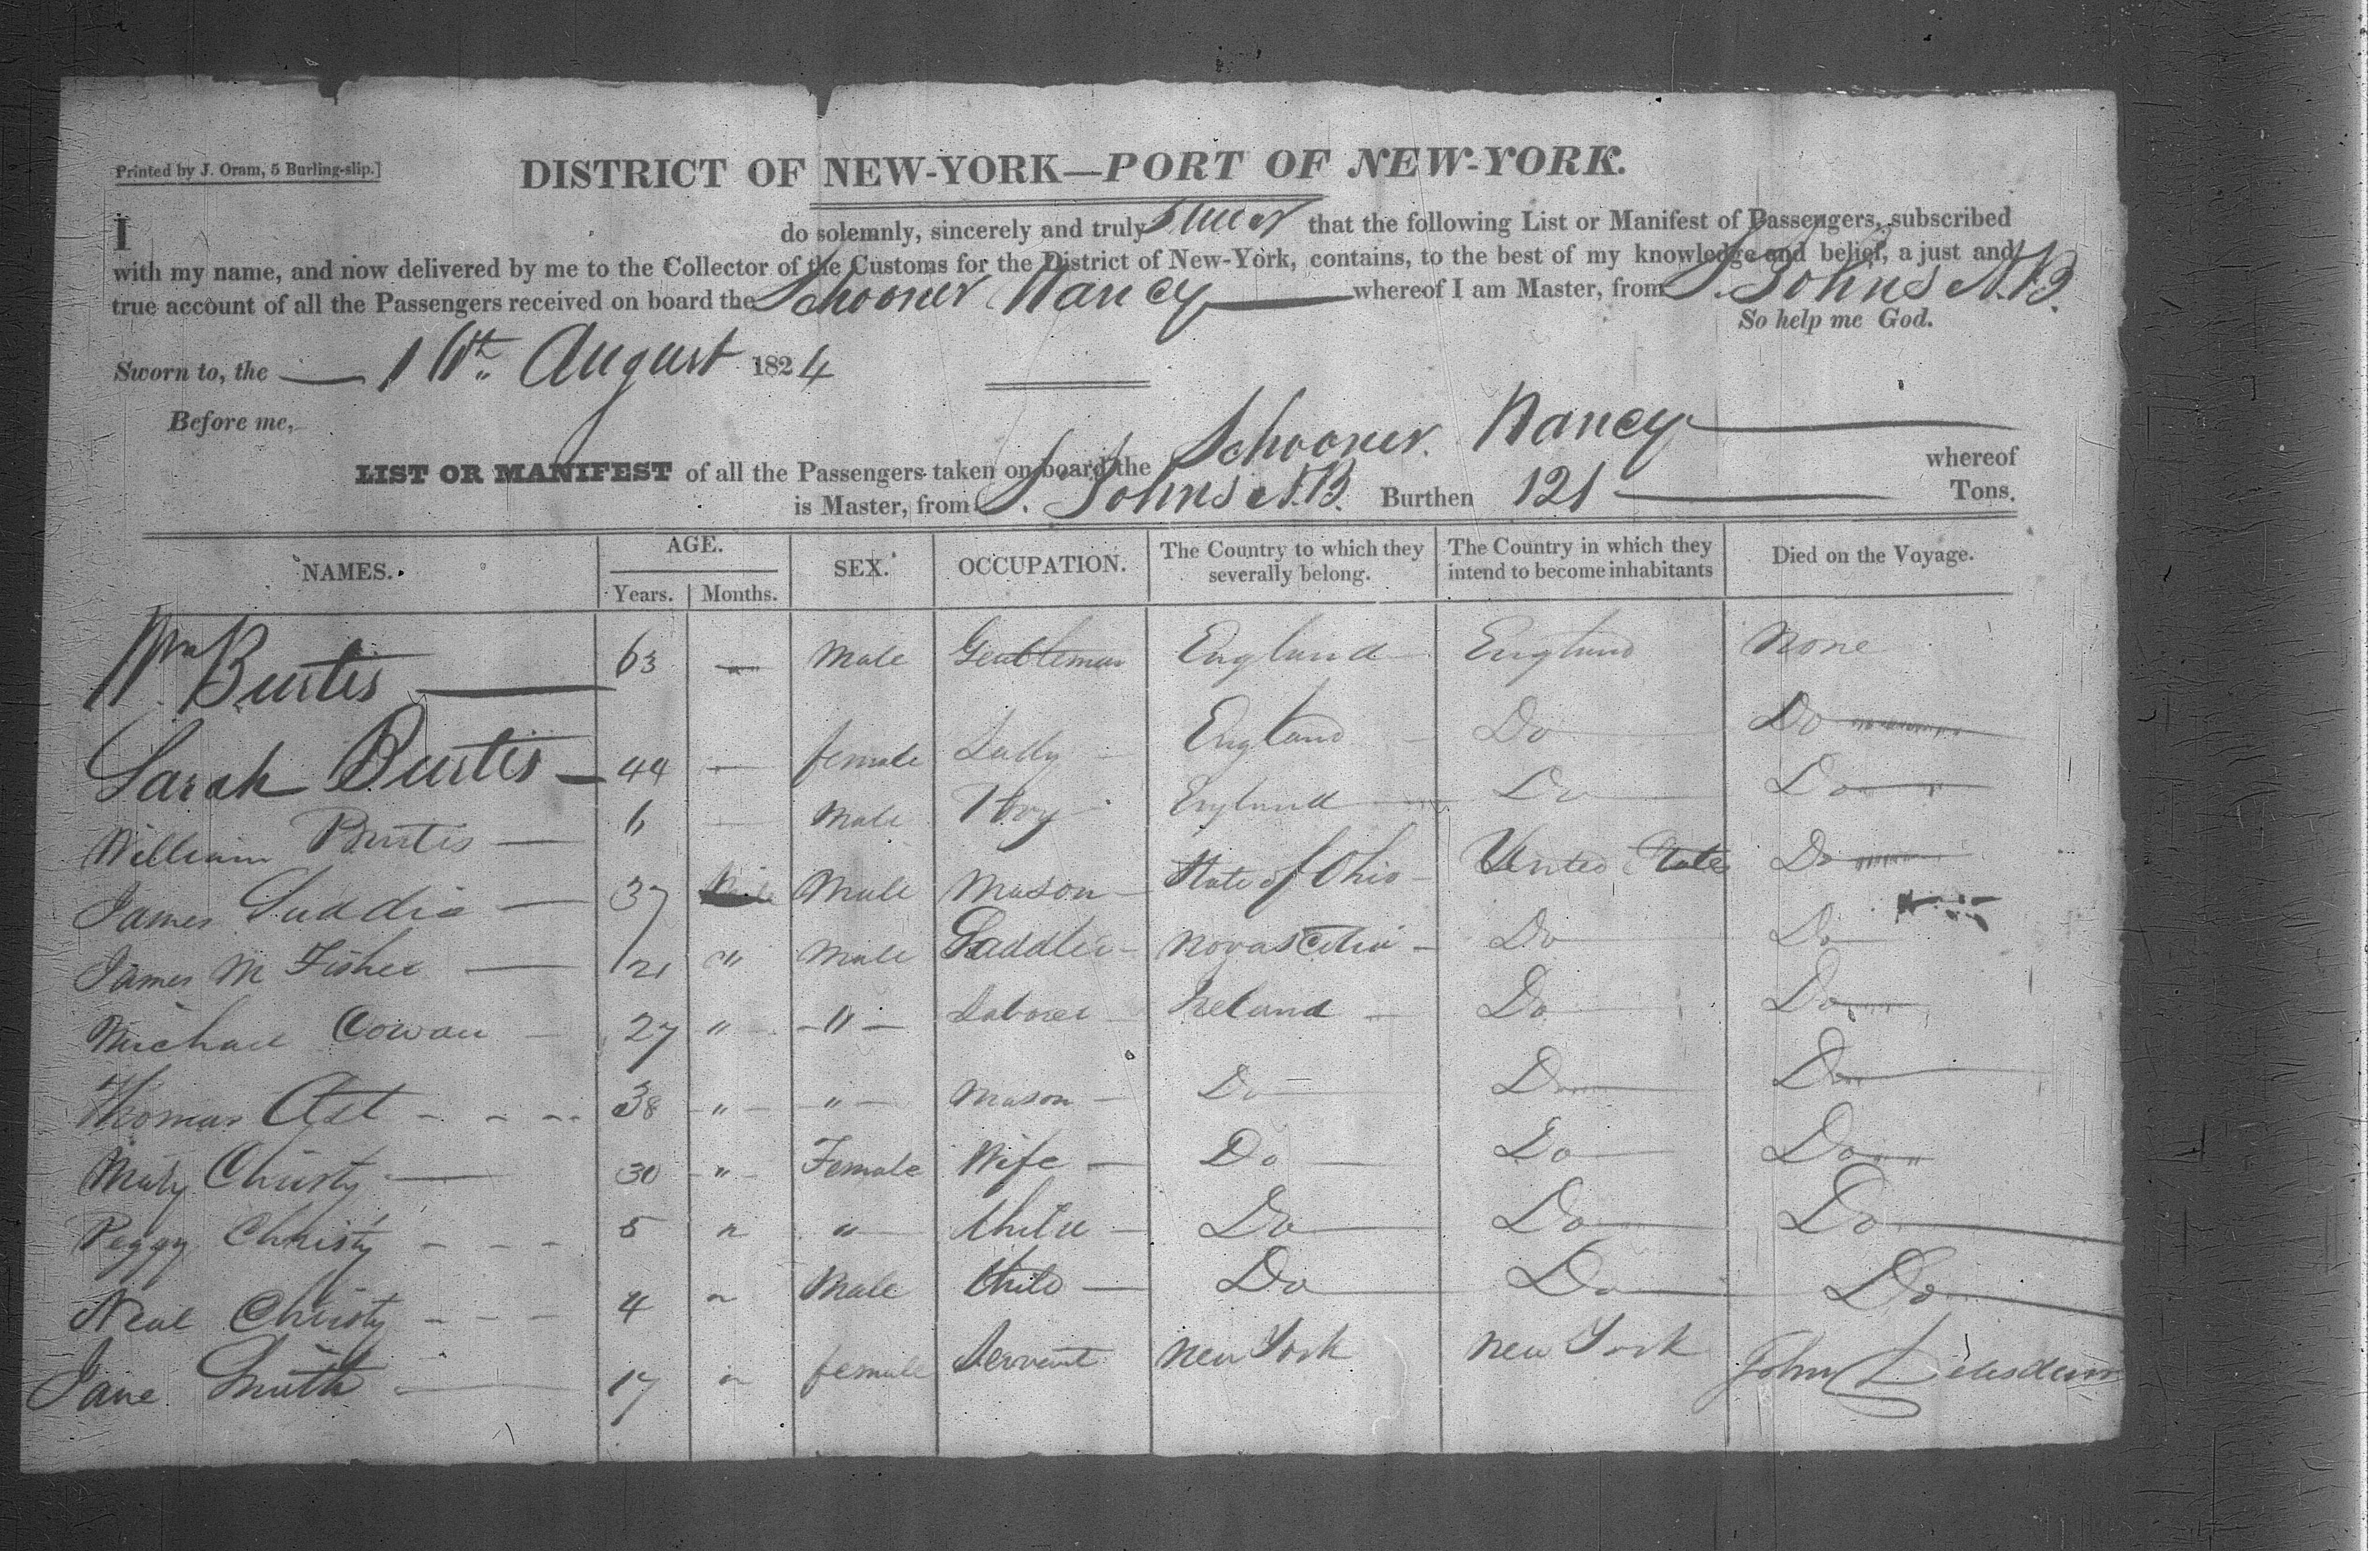 Printed by J. Oram, 5 Burling-slip.]
DISTRICT OF NEW-YORK—PORT OF NEW-YORK.
I do solemnly, sincerely and truly swear that the following List or Manifest of Passengers, subscribed
with my name, and now delivered by me to the Collector of the Customs for the District of New-York, contains, to the best of my knowledge and belief, a just and
true account of all the Passengers received on board the Schooner Nancy whereof I am Master, from S. Johns N.B.
So help me God.
Sworn to, the 16th August 1824
Before me,
LIST OR MANIFEST of all the Passengers taken on board the Schooner Nancy whereof
is Master, from S. Johns N.B. Burthen 121 Tons.
NAMES. AGE. SEX. OCCUPATION. The Country to which they severally belong. The Country in which they intend to become inhabitants Died on the Voyage.
Years. Months.
Wm. Burtis 63 — Male Gentleman England England None
Sarah Burtis 44 — female Lady England Do Do
William Burtis 6 — Male Boy England Do Do
James 37 Male Mason State of Ohio United States Do
James M Fisher 21 " Male Saddler Novascotia Do Do
Michael Cowan 27 " " Laborer Ireland Do Do
Thomas 38 " " Mason Do Do Do
Mary Christy 30 " Female Wife Do Do Do
Peggy Christy 5 " " Child Do Do Do
Neal Christy 4 " Male Child Do Do Do
Jane Smith 17 " female Servant New York New York
John